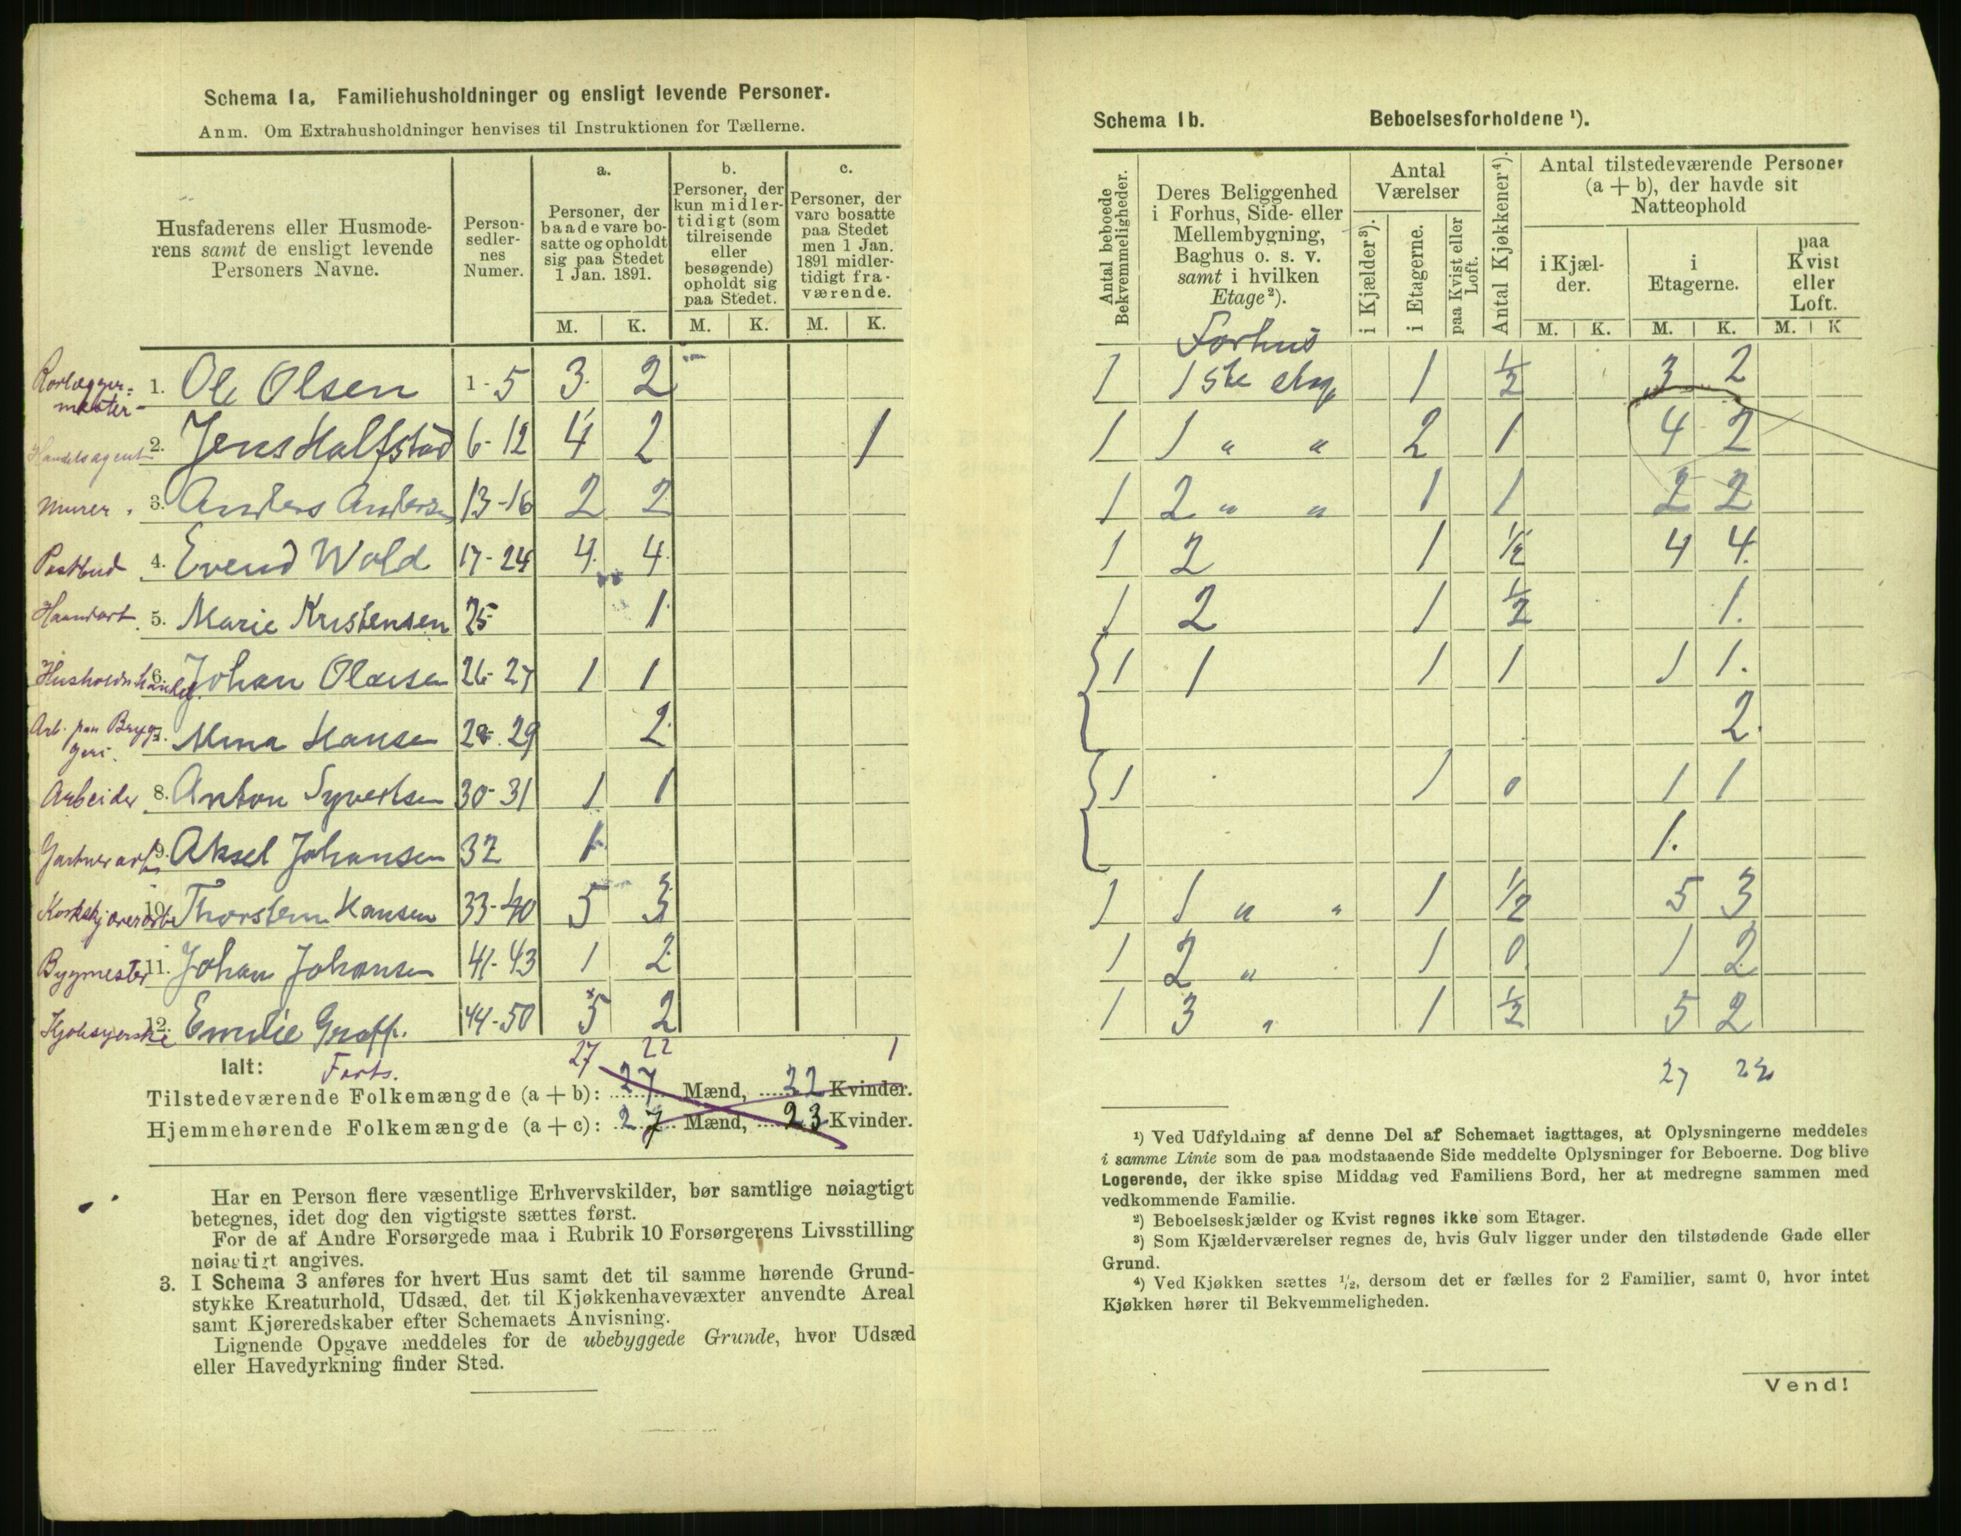 Schema 1a. Familiehusholdninger og ensligt levende Personer.
Anm. Om Extrahusholdninger henvises til Instruktionen for Tællerne.
Husfaderens eller Husmoderens samt de ensligt levende Personers Navne.
Personsedlernes Numer.
a. Personer, der baade vare bosatte og opholdt sig paa Stedet 1 Jan. 1891.
b. Personer, der kun midlertidigt (som tilreisende eller besøgende) opholdt sig paa Stedet.
c. Personer, der vare bosatte paa Stedet men 1 Jan. 1891 midlertidigt fraværende.
M. K. M. K. M. K.
Rørlæggermester 1. Ole Olsen 1-5 3 2
Handelsagent 2. Jens Halfstad 6-12 4 2 1
Murer 3. Anders Andersen 13-16 2 2
Postbud 4. Evend Wold 17-24 4 4
Haandart. 5. Marie Kristensen 25 1
6. Johan Olausen 26-27 1 1
Arb. paa Bryggeri. Mina Hansen 28-29 2
Arbeider 8. Anton Syvertsen 30-31 1 1
Gartnerarb 9. Aksel Johansen 32 1
Korkskjærerarb 10. Thorstein Hansen 33-40 5 3
Bygmester 11. Johan Johansen 41-43 1 2
Kjolesyerske 12. Emilie Graff. 44-50 5 2
Ialt: Forts. 27 22 1
Tilstedeværende Folkemængde (a + b): 27 Mænd, 22 Kvinder.
Hjemmehørende Folkemængde (a + c): 27 Mænd, 23 Kvinder.
Har en Person flere væsentlige Erhvervskilder, bør samtlige nøiagtigt
betegnes, idet dog den vigtigste sættes først.
For de af Andre Forsørgede maa i Rubrik 10 Forsørgerens Livsstilling
nøiagtigt angives.
3. I Schema 3 anføres for hvert Hus samt det til samme hørende Grund-
stykke Kreaturhold, Udsæd, det til Kjøkkenhavevæxter anvendte Areal
samt Kjøreredskaber efter Schemaets Anvisning.
Lignende Opgave meddeles for de ubebyggede Grunde, hvor Udsæd
eller Havedyrkning finder Sted.
Schema 1b. Beboelsesforholdene ¹).
Antal beboede Bekvemmeligheder.
Deres Beliggenhed i Forhus, Side- eller Mellembygning, Baghus o. s. v. samt i hvilken Etage ²).
Antal Værelser
i Kjælder ³).
i Etagerne.
paa Kvist eller Loft.
Antal Kjøkkener ⁴).
Antal tilstedeværende Personer (a + b), der havde sit Natteophold
i Kjælder.
i Etagerne.
paa Kvist eller Loft.
M. K. M. K. M. K
Forhus
1 1ste etag 1 ½ 3 2
1 1 " " 2 1 4 2
1 2 " " 1 1 2 2
1 2 1 ½ 4 4
1 2 1 ½ 1.
1 1 1 1 1 1.
2.
1 1 0 1 1
1.
1 1 " " 1 ½ 5 3
1 2 " 1 0 1 2
1 3 " 1 ½ 5 2
27 22
¹) Ved Udfyldning af denne Del af Schemaet iagttages, at Oplysningerne meddeles
i samme Linie som de paa modstaaende Side meddelte Oplysninger for Beboerne. Dog blive
Logerende, der ikke spise Middag ved Familiens Bord, her at medregne sammen med
vedkommende Familie.
²) Beboelseskjælder og Kvist regnes ikke som Etager.
³) Som Kjælderværelser regnes de, hvis Gulv ligger under den tilstødende Gade eller
Grund.
⁴) Ved Kjøkken sættes ½, dersom det er fælles for 2 Familier, samt 0, hvor intet
Kjøkken hører til Bekvemmeligheden.
Vend!